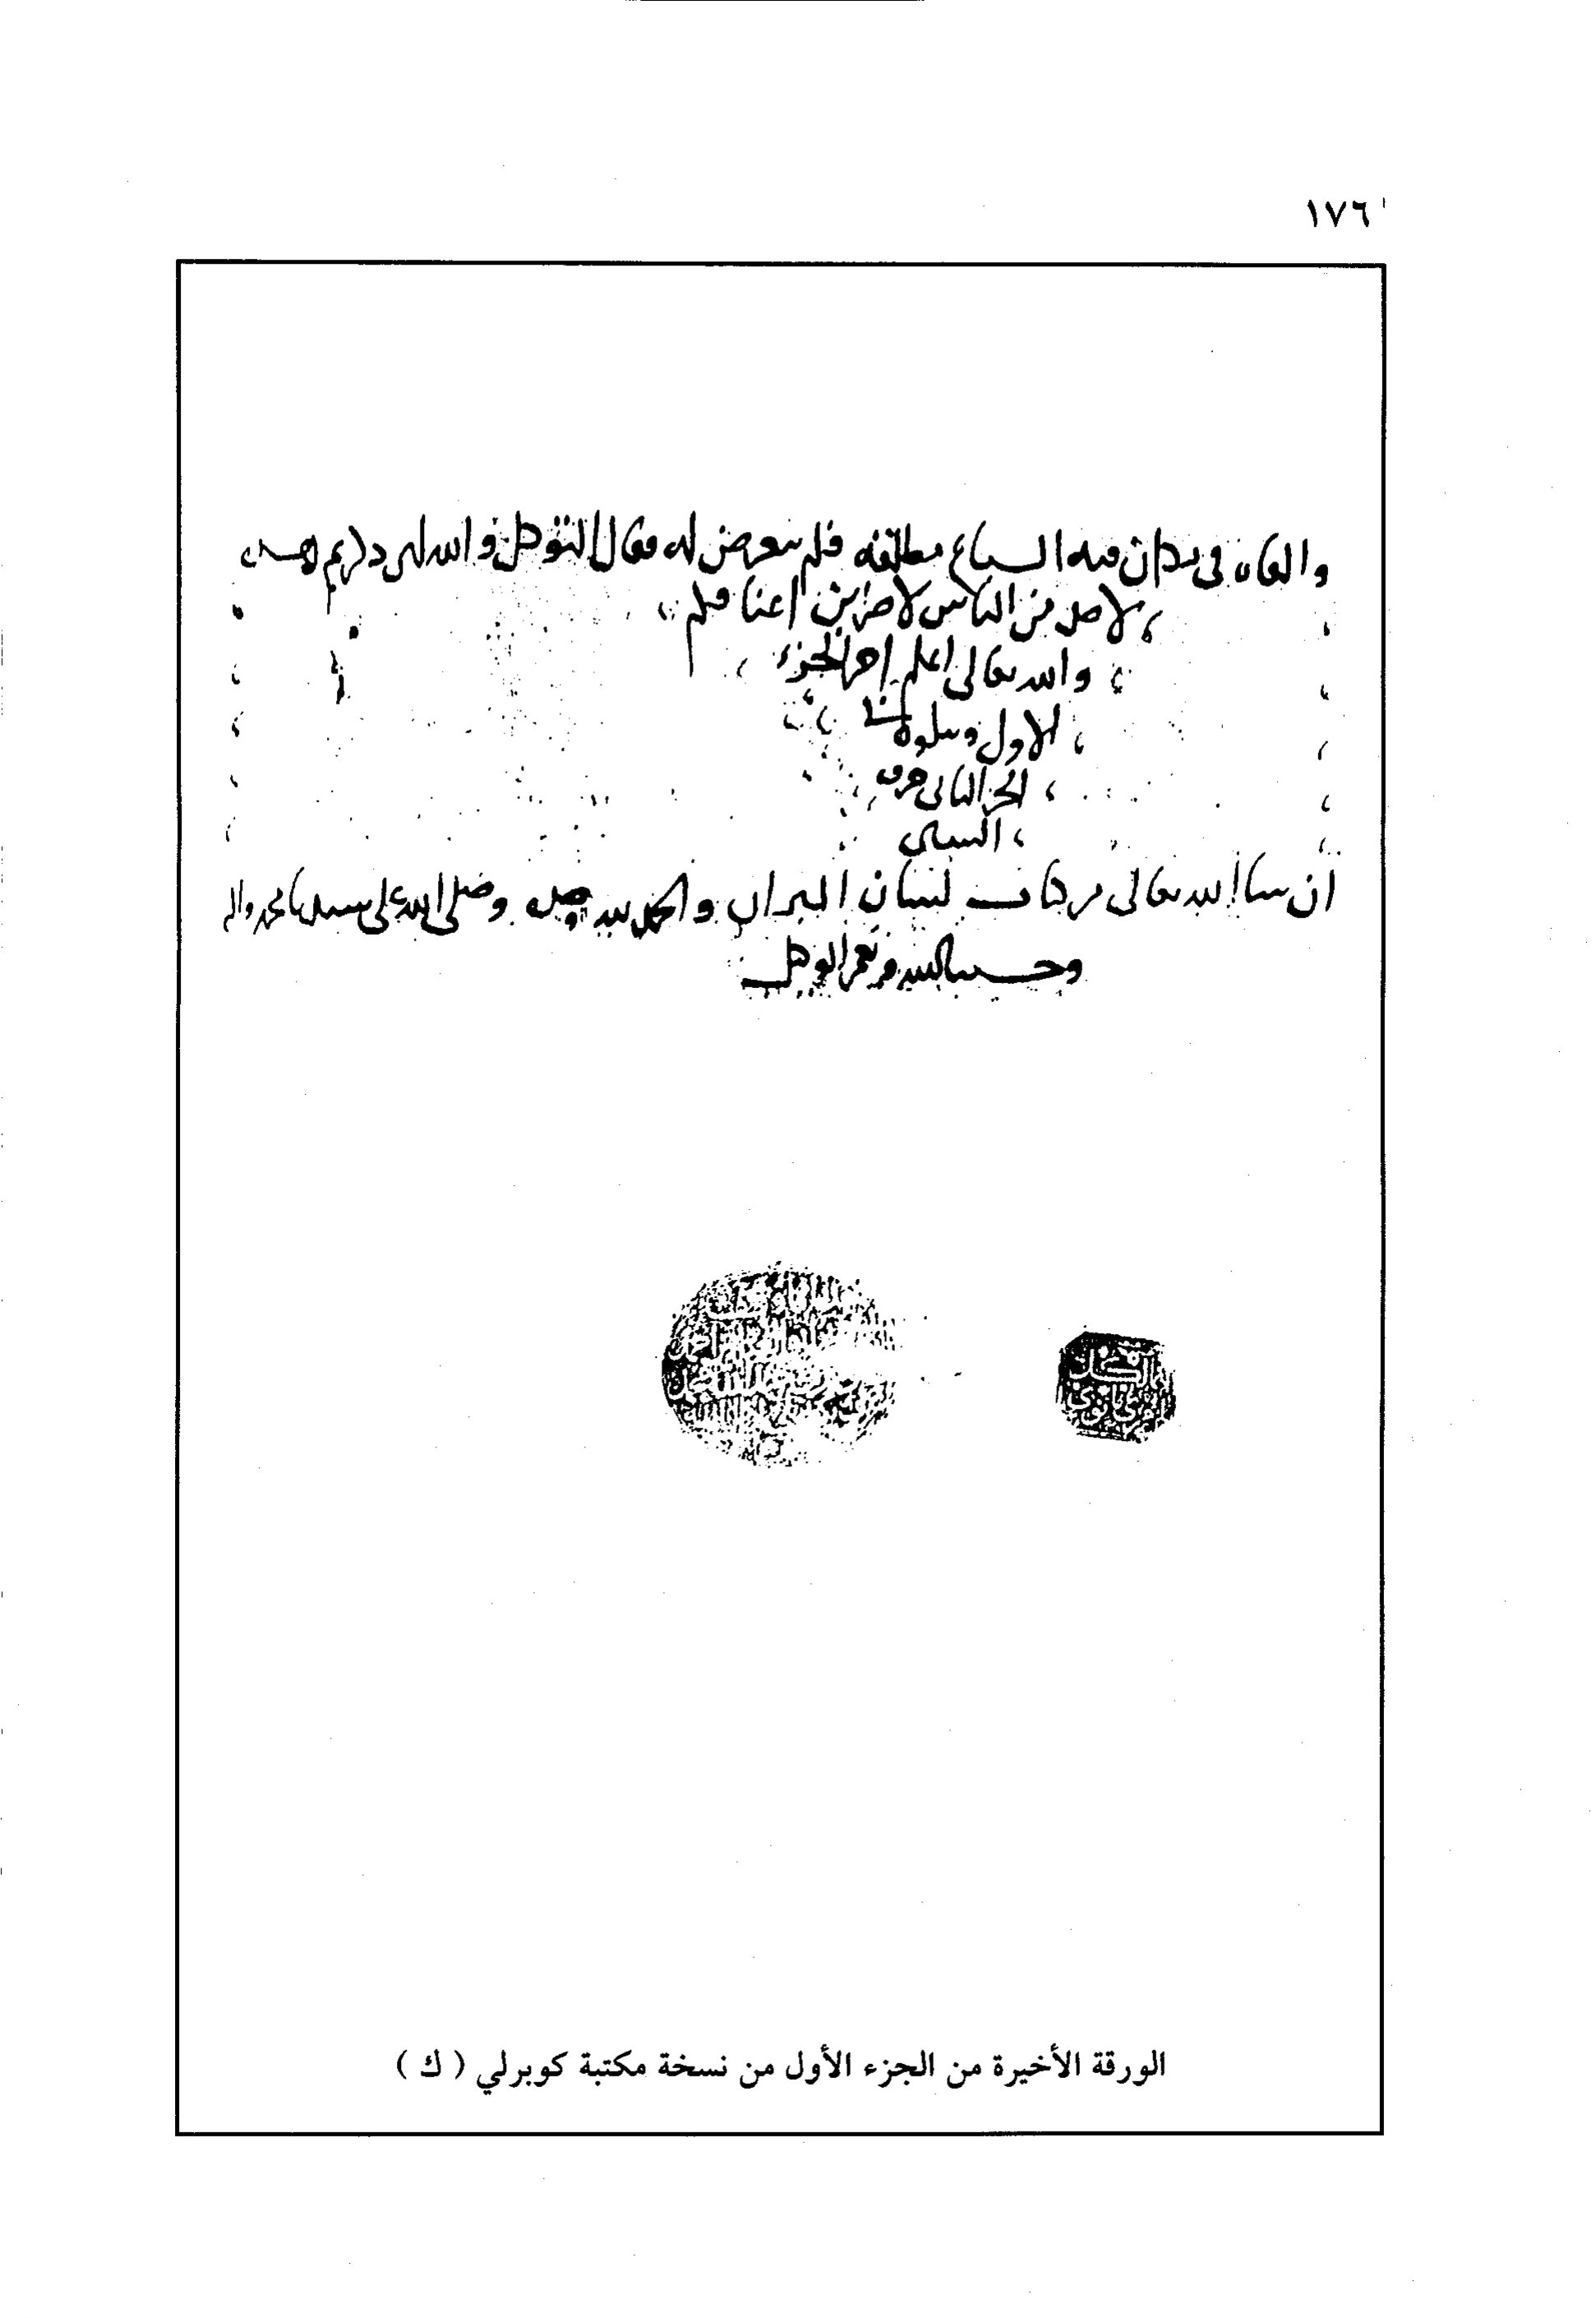 ١٧٦
والقاه في ميدان فيه السباع مطلقة فلم تتعرض له فقال المتوكل والله لين ذكرتم هذا
لاحد من الناس لاضربن اعناقكم
والله تعالى اعلم اخر الجزء
الاول ويتلوه
الجزء الثاني حرف
السين
ان شا الله تعالى من كتاب لسان الميزان والحمد لله وحده وصلى الله على سيدنا محمد واله
وحسبنا الله ونعم الوكيل
الورقة الأخيرة من الجزء الأول من نسخة مكتبة كوبرلي ( ك )